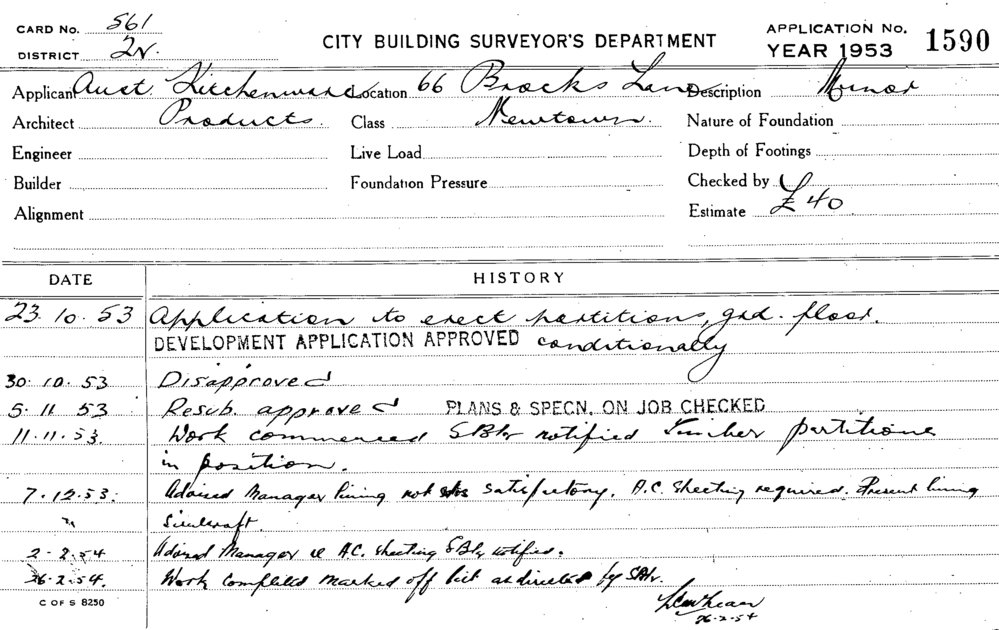 CARD NO. 561
DISTRICT 2N.
CITY BUILDING SURVEYOR'S DEPARTMENT
APPLICATION NO. 1590
YEAR 1953
Applicant Aust. Kitchenware Location 66 Brocks Lane Description Minor
Architect Products. Class Newtown. Nature of Foundation
Engineer Live Load Depth of Footings
Builder Foundation Pressure Checked by
Alignment Estimate £40
DATE HISTORY
23.10.53 Application to erect partitions, grd. floor.
DEVELOPMENT APPLICATION APPROVED conditionally
30.10.53 Disapproved
5.11.53 Resub. approved PLANS & SPECN. ON JOB CHECKED
11.11.53. Work commenced notified Timber partitions
in position.
7.12.53. Advised Manager lining not satisfactory. A.C. Sheeting required. Present lining
"
2.2.54 Advised Manager re A.C. sheeting notified.
26.2.54. Work completed marked off as directed by
26-2-54
C OF S 8250